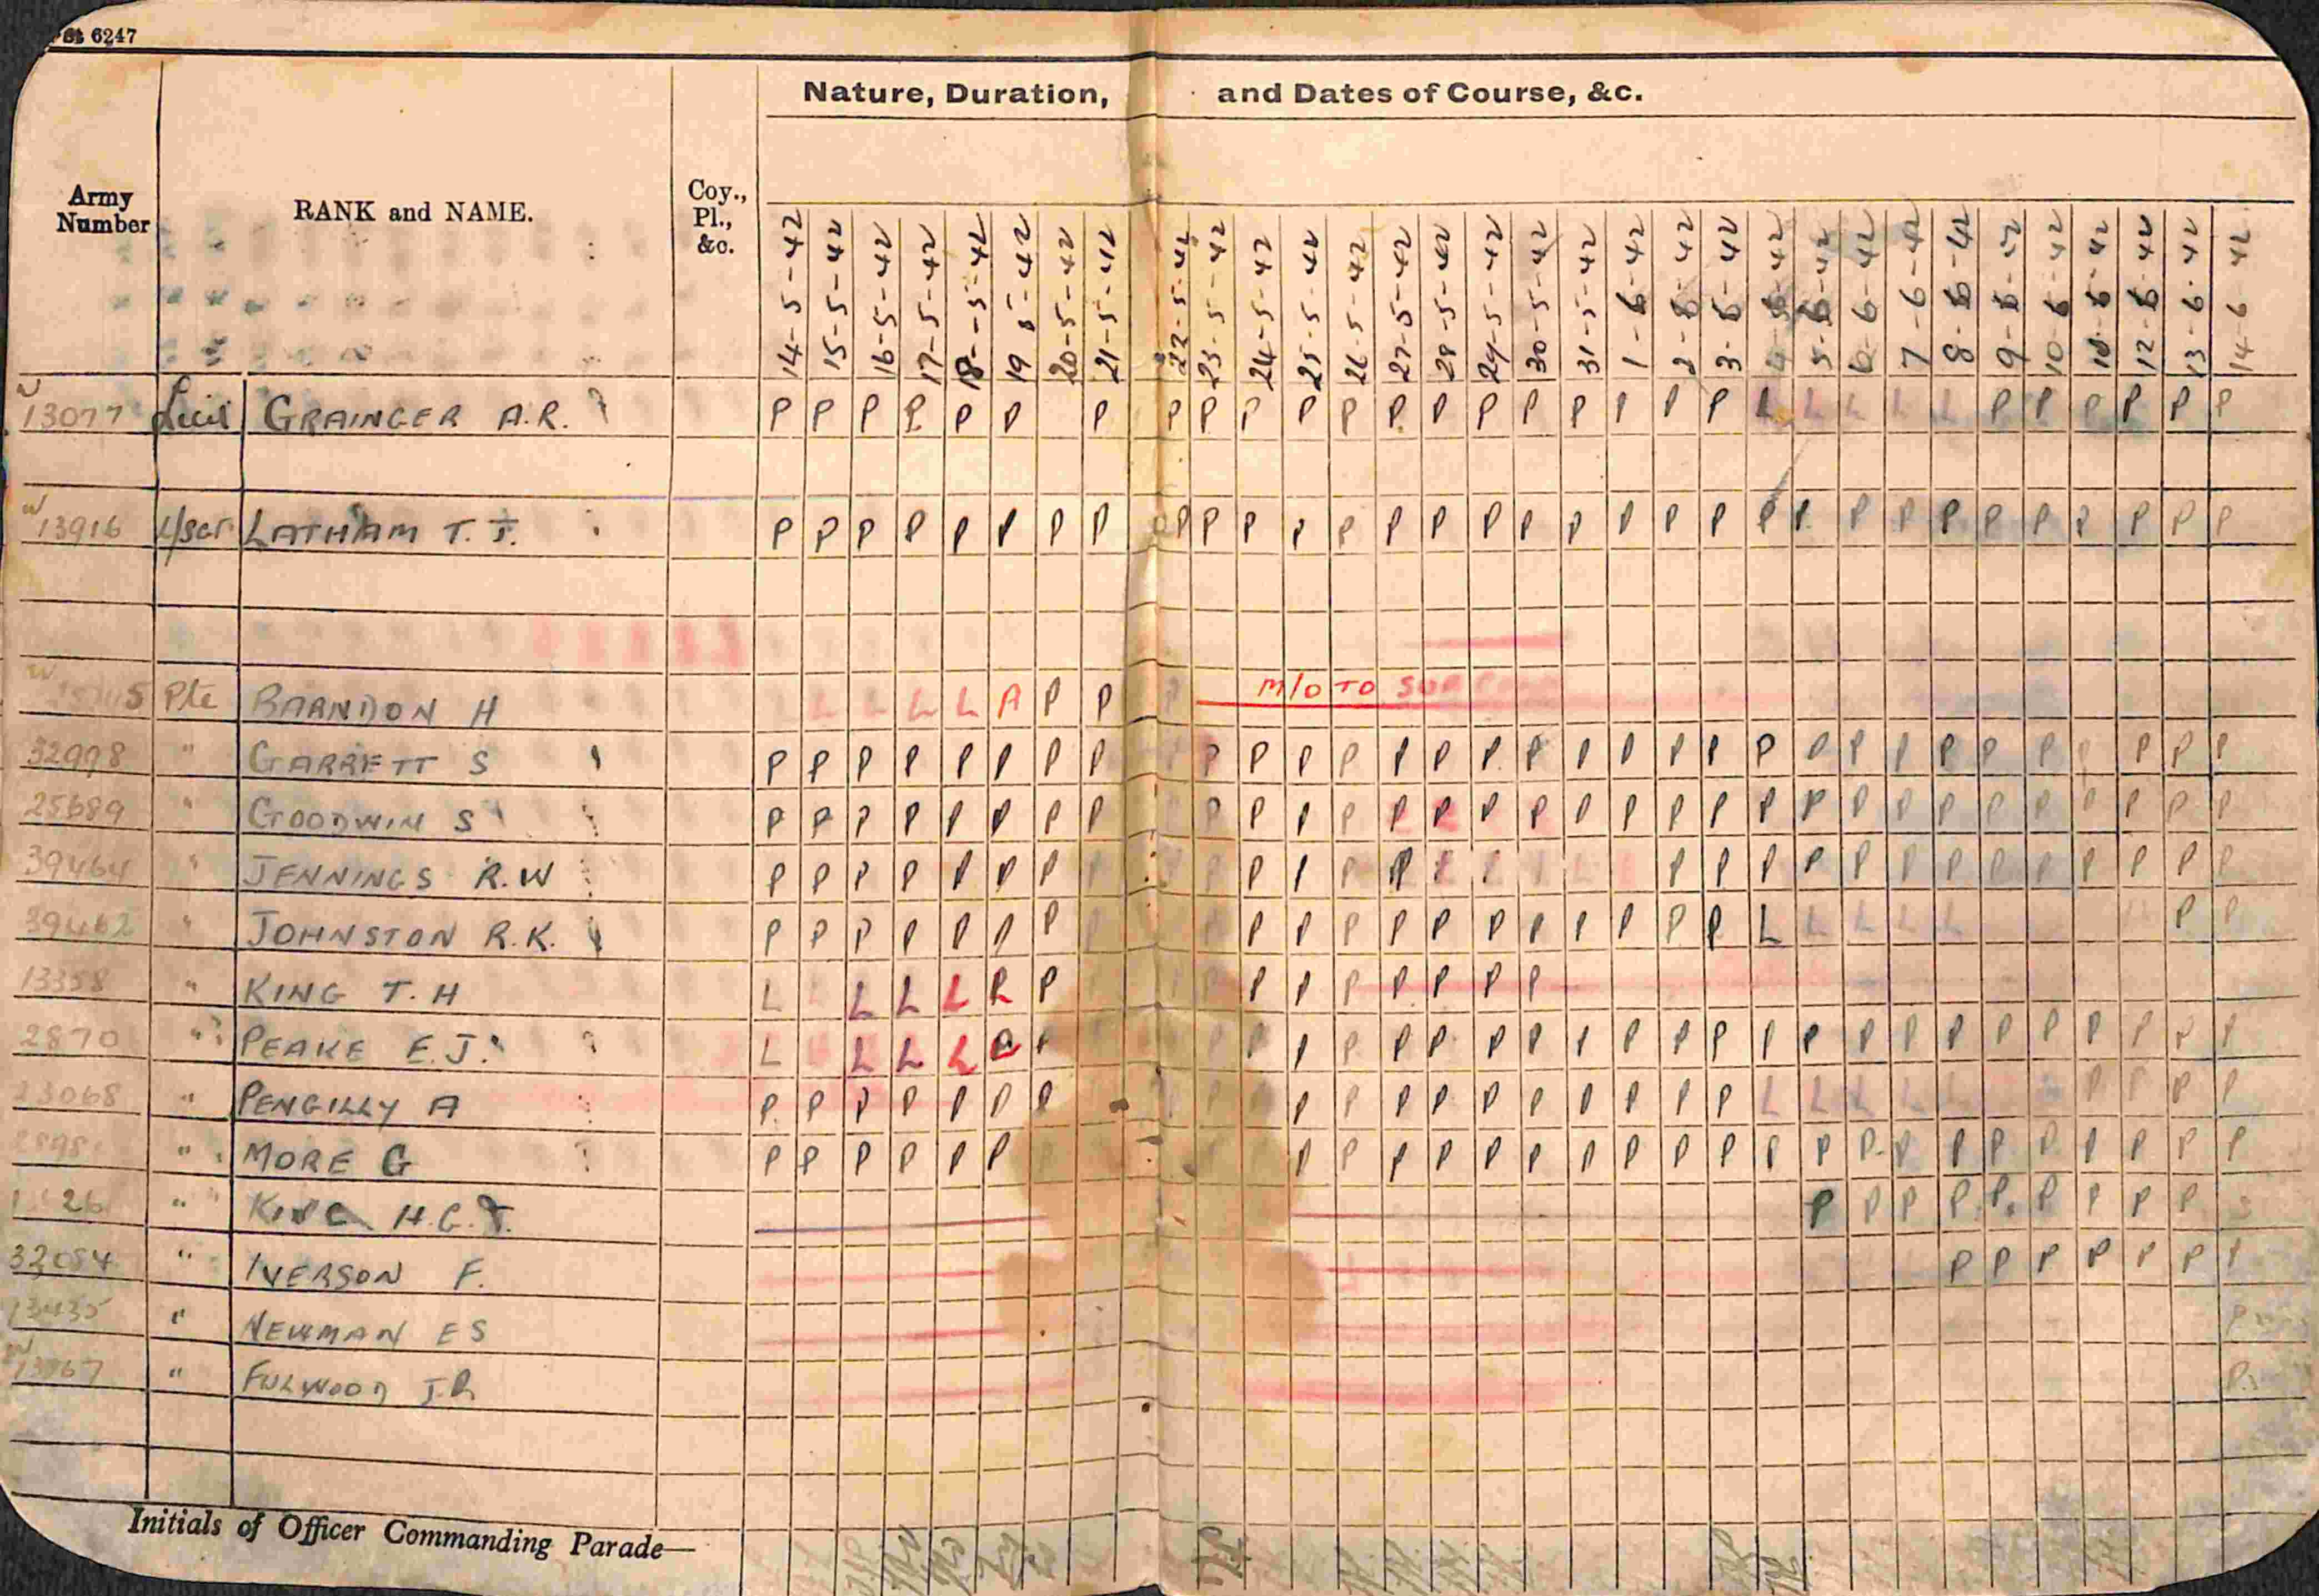 6247
Nature, Duration, and Dates of Course, &c.
Army Number
RANK and NAME.
Coy., Pl., &c.
14-5-42 15-5-42 16-5-42 17-5-42 18-5-42 19-5-42 20-5-42 21-5-42 22-5-42 23-5-42 24-5-42 25-5-42 26-5-42 27-5-42 28-5-42 29-5-42 30-5-42 31-5-42 1-6-42 2-6-42 3-6-42 4-6-42 5-6-42 6-6-42 7-6-42 8-6-42 9-6-42 10-6-42 12-6-42 13-6-42 14-6-42
13077 GRAINGER A.R. P P P P P P P P P P P P P P P P P P P P L L L L L P P P P P P
W 13916 L/Sgt LATHAM T. J. P P P P P P P P P P P P P P P P P P P P P P P P P P P P P P P
Pte BARNDON H L L L L A P P P M/O TO
32998 " GARRETT S P P P P P P P P P P P P P P P P P P P P P P P P P P P P P
25689 " GOODWIN S P P P P P P P P P P P P P P P P P P P P P P P P P P P P P P
39464 " JENNINGS R.W P P P P P P P P P P P P L L L L L P P P P P P P P P P P P P
39462 " JOHNSTON R.K. P P P P P P P P P P P P P P P P P P P P L L L L L P P
13358 " KING T. H L L L L L R P P P P P P P P P
2870 " PEAKE E. J. L L L L L P P P P P P P P P P P P P P P P P P P P P P P P
23068 " PENGILLY A P P P P P P P P P P P P P P P P P P L L L L L P P P P
" MORE G P P P P P P P P P P P P P P P P P P P P P P P P P P P
" KING H.G.J. P P P P P P P P P S
32054 " IVERSON F. P P P P P P P
13435 " NEWMAN E S P
13767 " FULWOOD J.R P
Initials of Officer Commanding Parade—